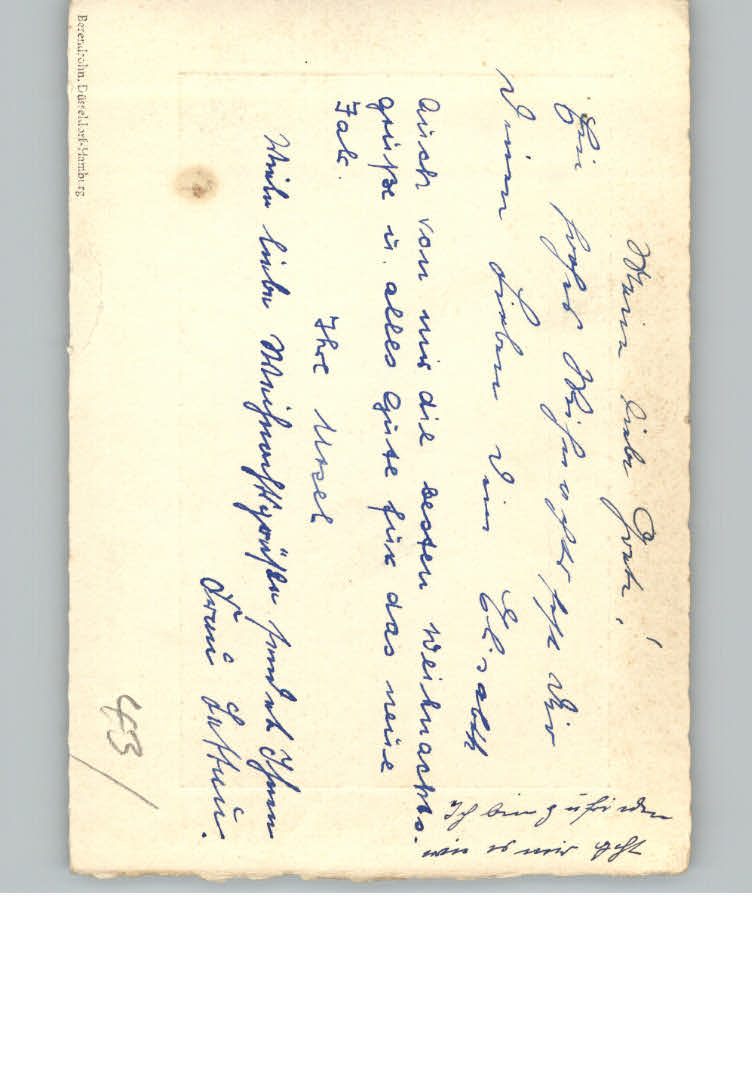 Meine liebe Grete!
Ein frohes Weihnachtsfest Dir
Deinen Lieben Elisabeth
Auch von mir die besten Weihnachts-
grüße u. alles Gute für das neue
Jahr.
Ihre Ursel
liebe Weihnachtsgrüßen sendet Ihnen
Frau
Ich bin zufrieden
wie es mir geht
43/
Berendsohn, Düsseldorf-Hamburg